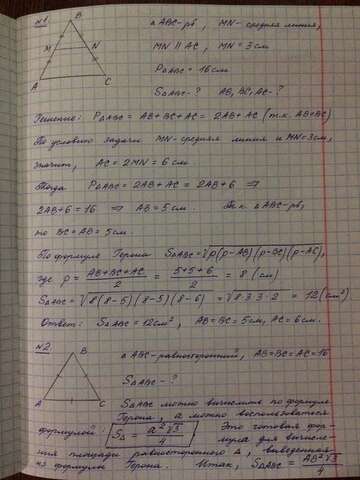 №1
B
M
N
A
C
△ABC - рб, MN - средняя линия,
MN || AC, MN = 3 см
P△ABC = 16 см
S△ABC - ? AB, BC, AC - ?
Решение: P△ABC = AB + BC + AC = 2AB + AC (т.к. AB=BC)
По условию задачи MN - средняя линия и MN = 3см,
значит, AC = 2MN = 6 см.
Тогда P△ABC = 2AB + AC = 2AB + 6 ⇒
2AB + 6 = 16 ⇒ AB = 5 см. Т.к. △ABC - рб,
то BC = AB = 5 см.
По формуле Герона S△ABC = √p(p-AB)(p-BC)(p-AC),
где p = (AB+BC+AC)/2 = (5+5+6)/2 = 8 (см)
S△ABC = √8(8-5)(8-5)(8-6) = √8·3·3·2 = 12 (см²)
Ответ: S△ABC = 12см², AB = BC = 5см, AC = 6 см.
№2
B
A
C
△ABC - равносторонний, AB=BC=AC=16
S△ABC - ?
S△ABC можно вычислить по формуле
Герона, а можно воспользоваться
формулой: S△ = a²√3/4 Это готовая фор-
мула для вычисле-
ния площади равностороннего △, выведенная
из формулы Герона. Итак, S△ABC = AB²√3/4